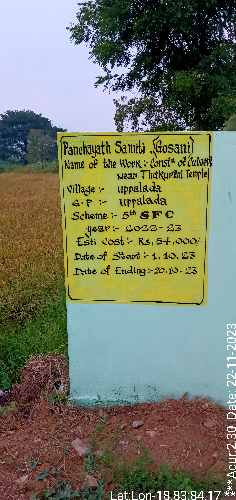 Panchayath Samiti :, (Gosani)
Name of the Work :- Constn of Culvert
near Thakurani Temple
Village :- uppalada
G.P :- uppalada
Scheme :- 5th SFC
year :- 2022-23
Esti Cost :- Rs, 54,000/
Date of Start :- 1.10.23
Date of Ending :- 20.10-23
Lat Lon-18.83:84.17***Acur2.30 Date: 22-11-2023